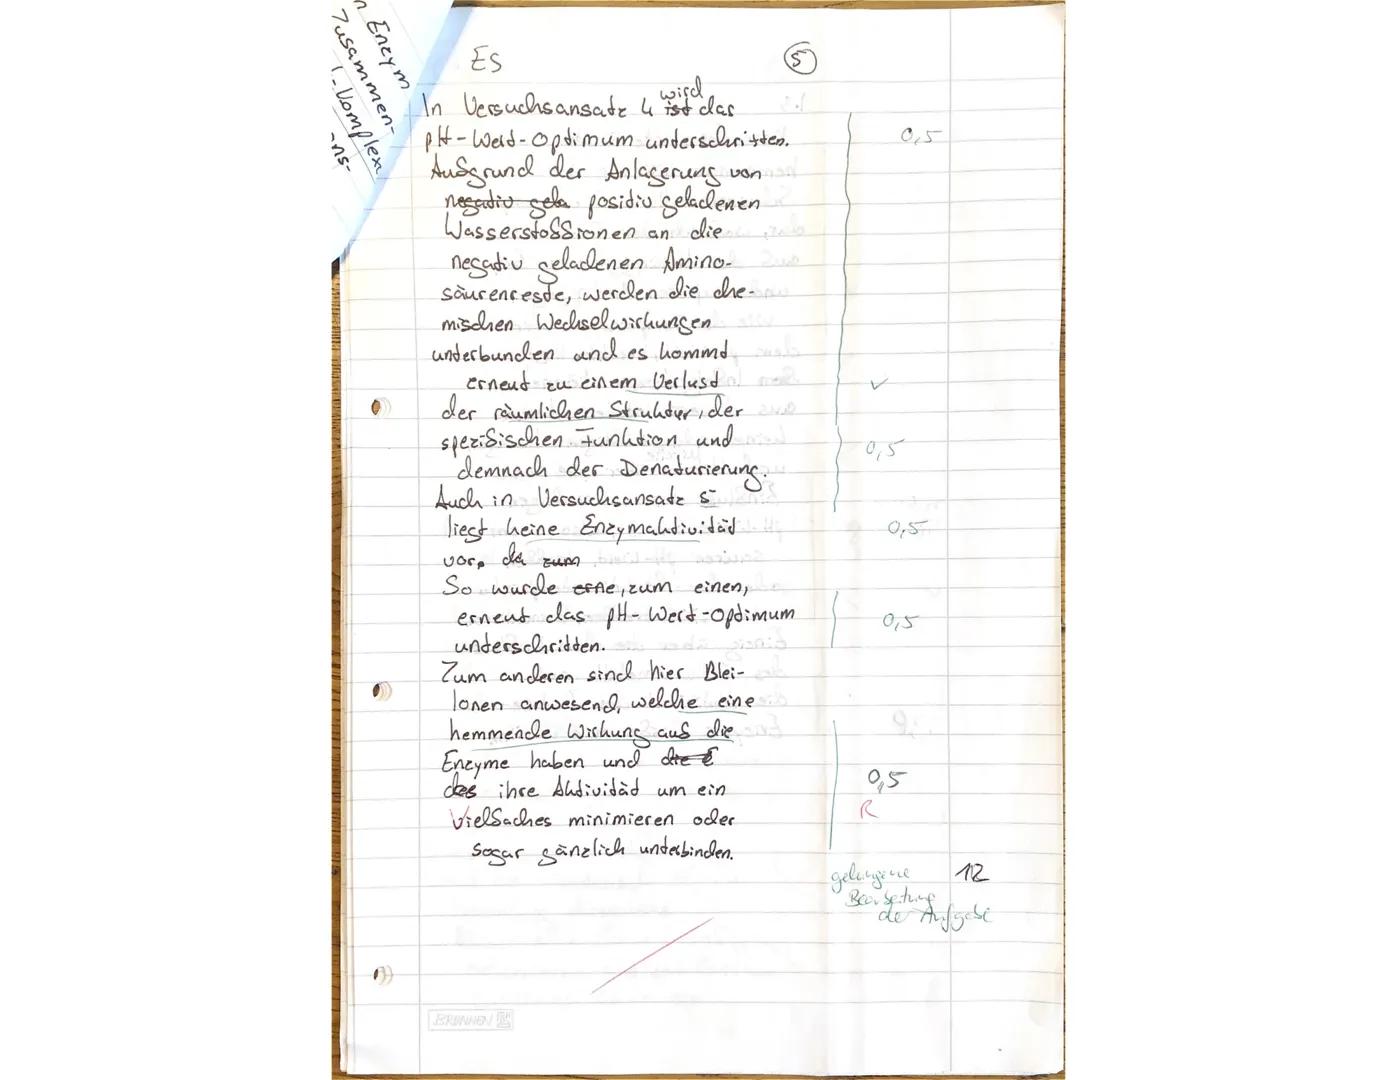 n Enzym
Zusammen-
l-Komplex
ons-
ES
5
In Versuchsansatz 4 ist wird das
pH-Wert-Optimum unterschritten.
0,5
Aufgrund der Anlagerung von
negativ gela positiv geladenen
Wasserstoffionen an die
negativ geladenen Amino-
säurenreste, werden die che-
mischen Wechselwirkungen
unterbunden und es kommt
erneut zu einem Verlust
✓
der räumlichen Struktur, der
spezifischen Funktion und
0,5
demnach der Denaturierung.
Auch in Versuchsansatz 5
liegt keine Enzymaktivität
0,5
vor, da zum
So wurde erne, zum einen,
erneut das pH-Wert-Optimum
0,5
unterschritten.
Zum anderen sind hier Blei-
Ionen anwesend, welche eine
hemmende Wirkung auf die
Enzyme haben und die E
des ihre Aktivität um ein
0,5
Vielfaches minimieren oder
R
sogar gänzlich unterbinden.
gelungene
12
Bearbeitung
der Aufgabe
BRUNNEN